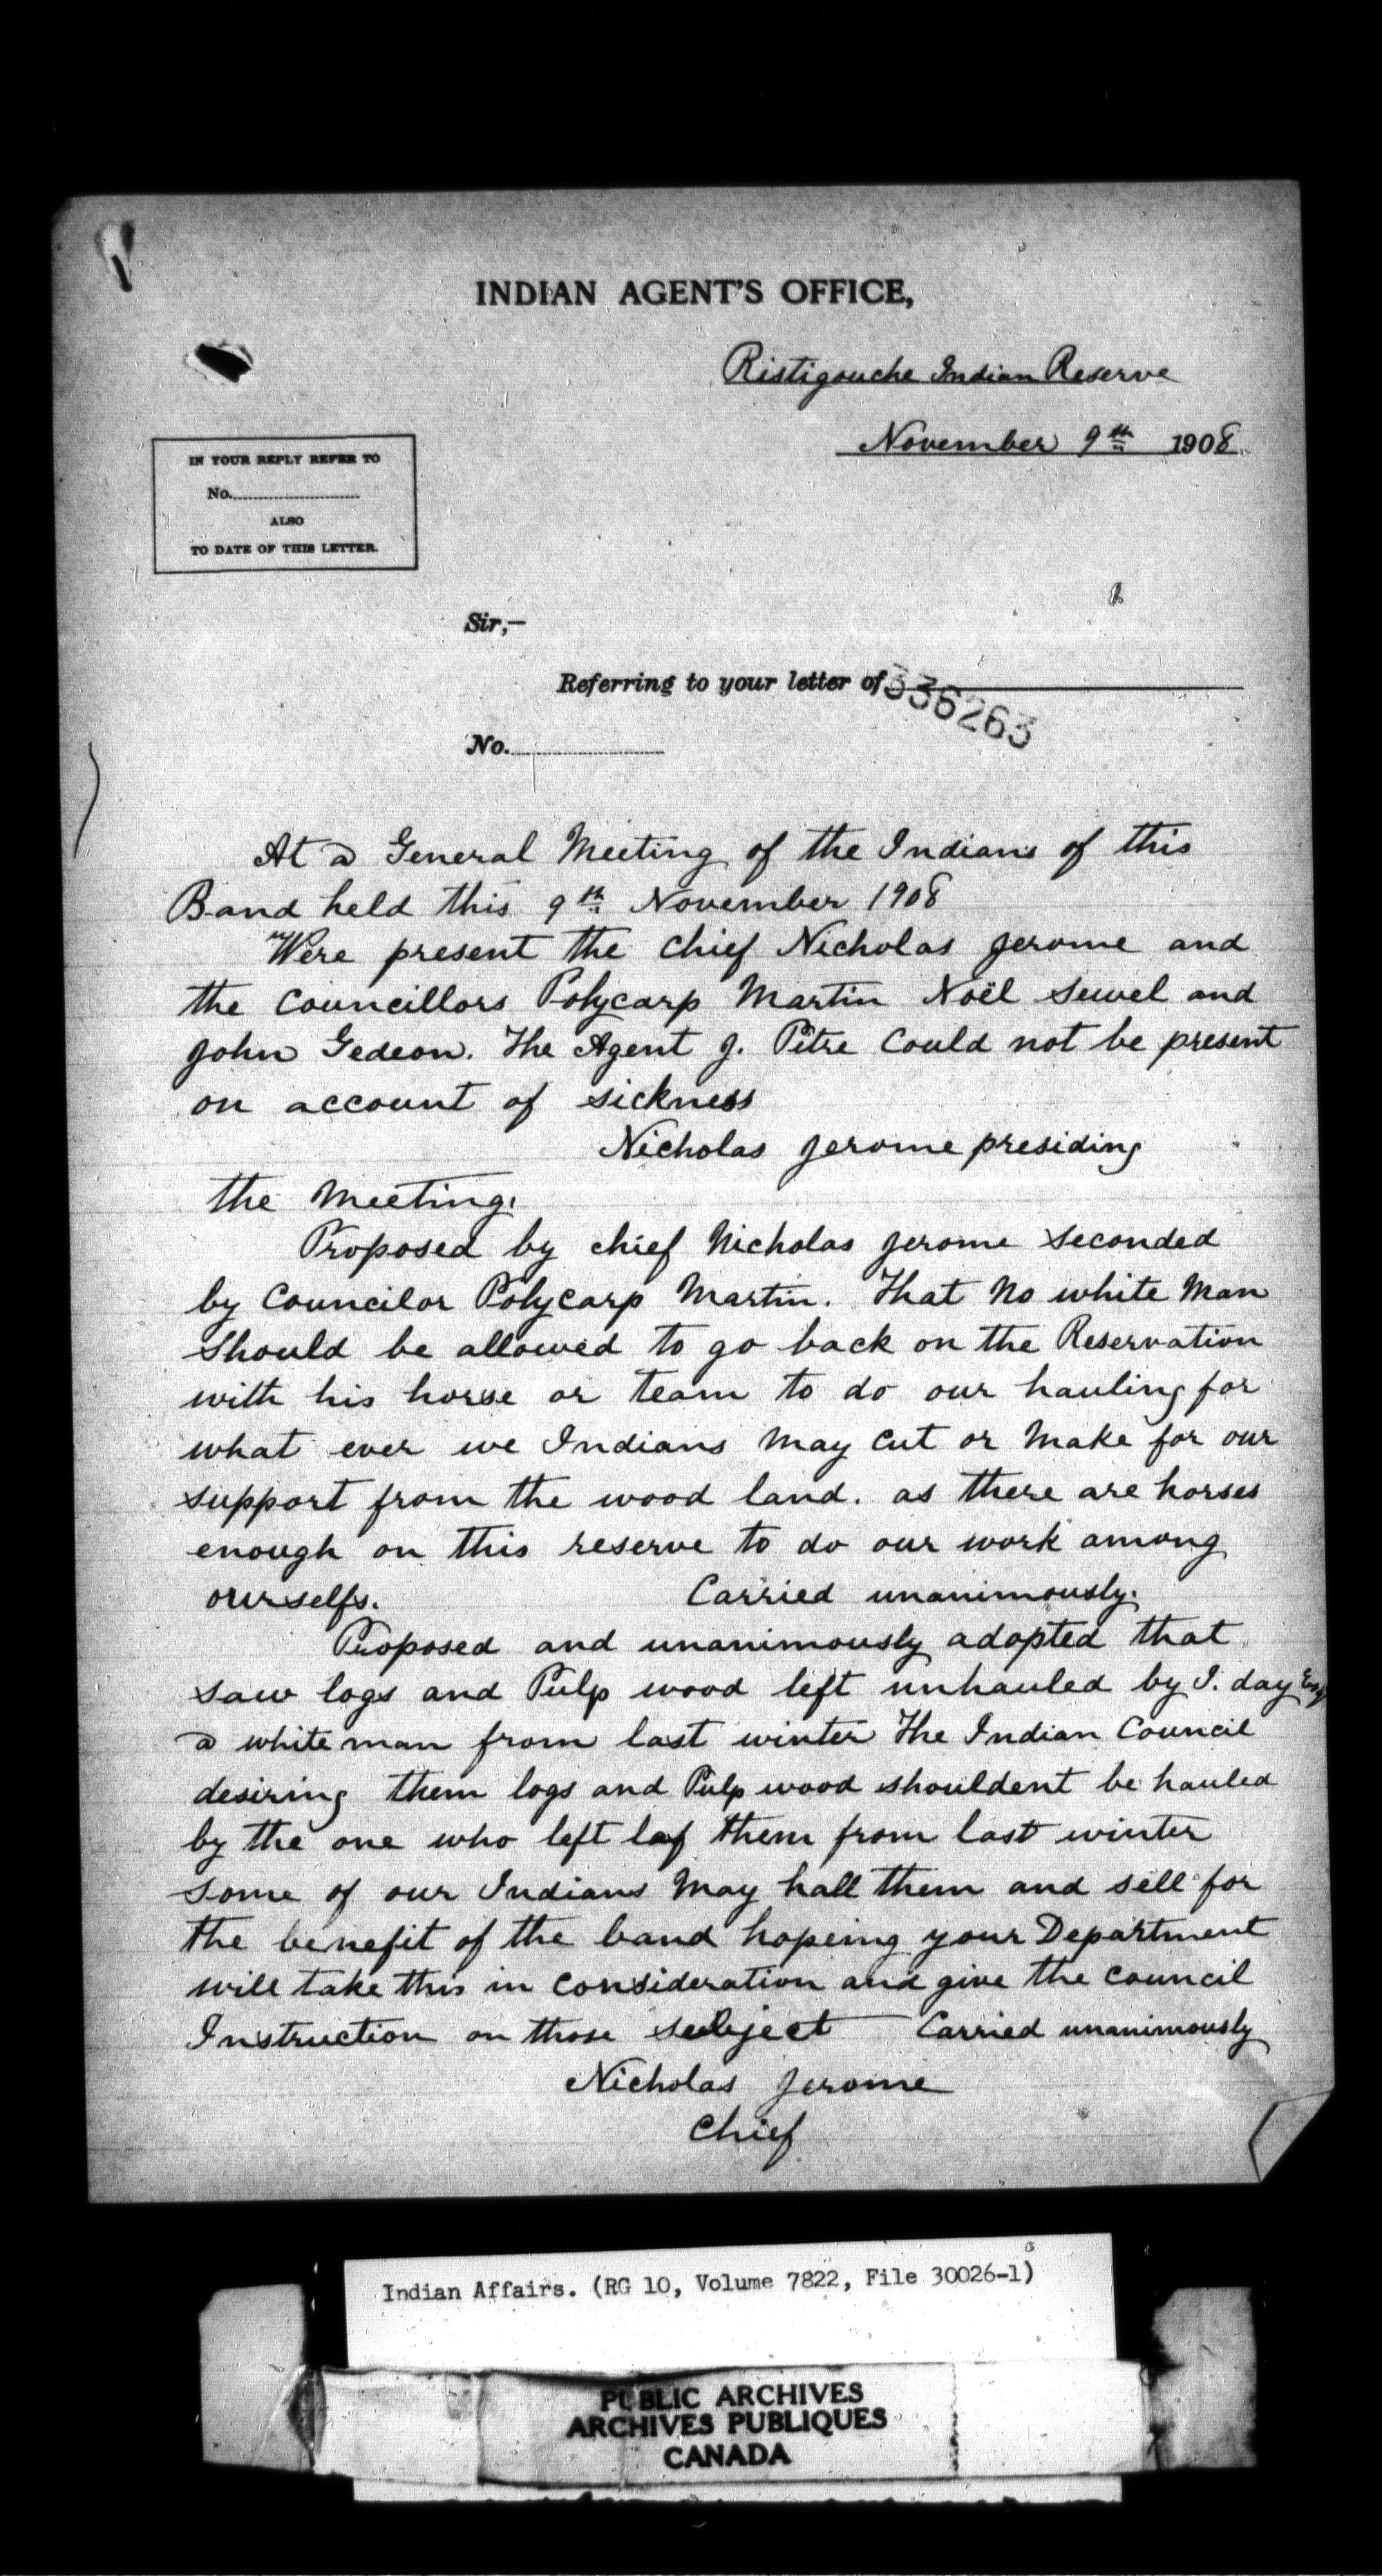 INDIAN AGENT'S OFFICE,
Ristigouche Indian Reserve
November 9th 1908
IN YOUR REPLY REFER TO
No.
ALSO
TO DATE OF THIS LETTER.
Sir,-
Referring to your letter of
336263
No.
At a General Meeting of the Indians of this
Band held this 9th November 1908
Were present the Chief Nicholas Jerome and
the Councillors Polycarp Martin Noël Sewel and
John Gedeon. The Agent J. Pitre Could not be present
on account of sickness
Nicholas Jerome presiding
the Meeting.
Proposed by chief Nicholas Jerome seconded
by Councilor Polycarp Martin. That No white Man
should be allowed to go back on the Reservation
with his horse or team to do our hauling for
what ever we Indians May cut or Make for our
support from the wood land. as there are horses
enough on this reserve to do our work among
ourselfs. Carried unanimously.
Proposed and unanimously adopted that
saw logs and Pulp wood left unhauled by I. day Esq
a white man from last winter The Indian Council
desiring them logs and Pulp wood shouldent be hauled
by the one who left them from last winter
some of our Indians May hall them and sell for
the benefit of the band hopeing your Department
will take this in consideration and give the council
Instruction on those subject Carried unanimously
Nicholas Jerome
Chief
Indian Affairs. (RG 10, Volume 7822, File 30026-1)
PUBLIC ARCHIVES
ARCHIVES PUBLIQUES
CANADA